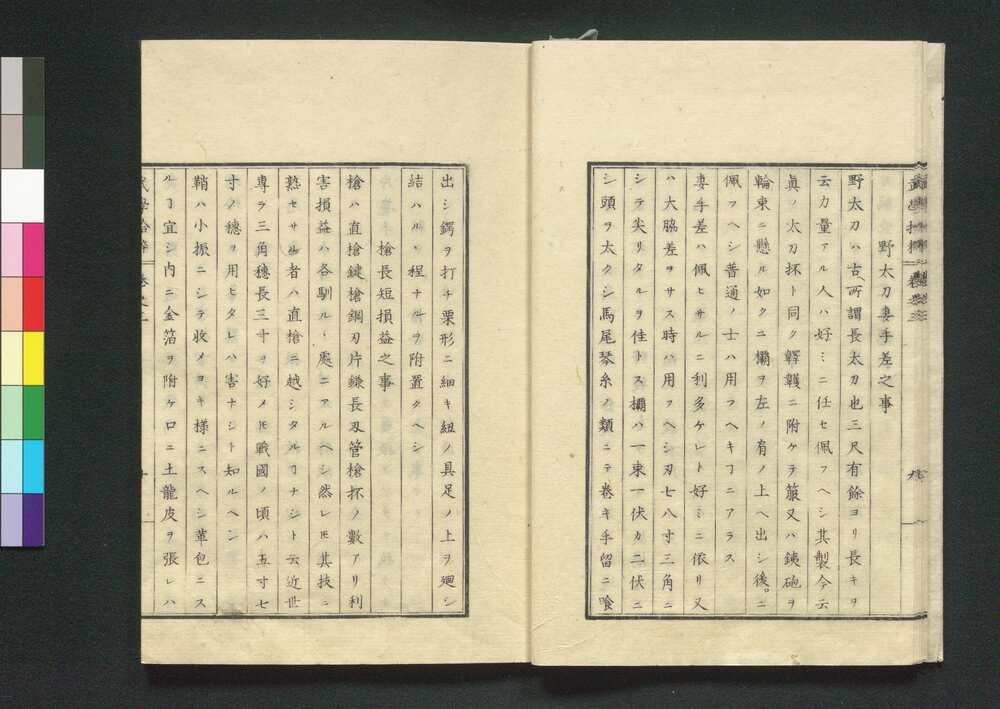 野太刀妻手差之事
野太刀ハ古所謂長太刀也三尺有餘ヨリ長キヲ
云力量アル人ハ好ミニ任セ佩フヘシ其製今云
眞ノ太刀抔ト同ク韘韄ニ附ケテ箙又ハ銕砲ヲ
輪束ニ懸ル如クニ欛ヲ左ノ肩ノ上ヘ出シ後ニ
佩フヘシ普通ノ士ハ用フヘキヿニアラス
妻手差ハ佩ヒサルニ利多ケレト好ミニ依リ又
ハ大脇差ヲサス時ハ用フヘシ刃七八寸三角ニ
シテ尖リタルヲ佳トス欛ハ一束一伏カ二伏ニ
シ頭ヲ太クシ馬尾琴糸ノ類ニテ卷キ手留ニ喰
出シ鍔ヲ打チ栗形ニ細キ紐ノ具足ノ上ヲ廻シ
結ハルヽ程ナルヲ附置クヘシ
槍長短損益之事
槍ハ直槍鍵槍鋼刃片鎌長刄管槍抔ノ數アリ利
害損益ハ各馴ルヽ處ニアルヘシ然レ𪜈其技ニ
熟セサル者ハ直槍ニ越シタルヿナシト云近世
專ラ三角穗長三寸ヲ好メ𪜈戰國ノ頃ハ五寸七
寸ノ穗ヲ用ヒタレハ害ナシト知ルヘシ
鞘ハ小振ニシテ收メヨキ樣ニスヘシ革包ニス
ルヿ宜シ内ニ金箔ヲ附ケ口ニ土龍皮ヲ張レハ
卷之三
十